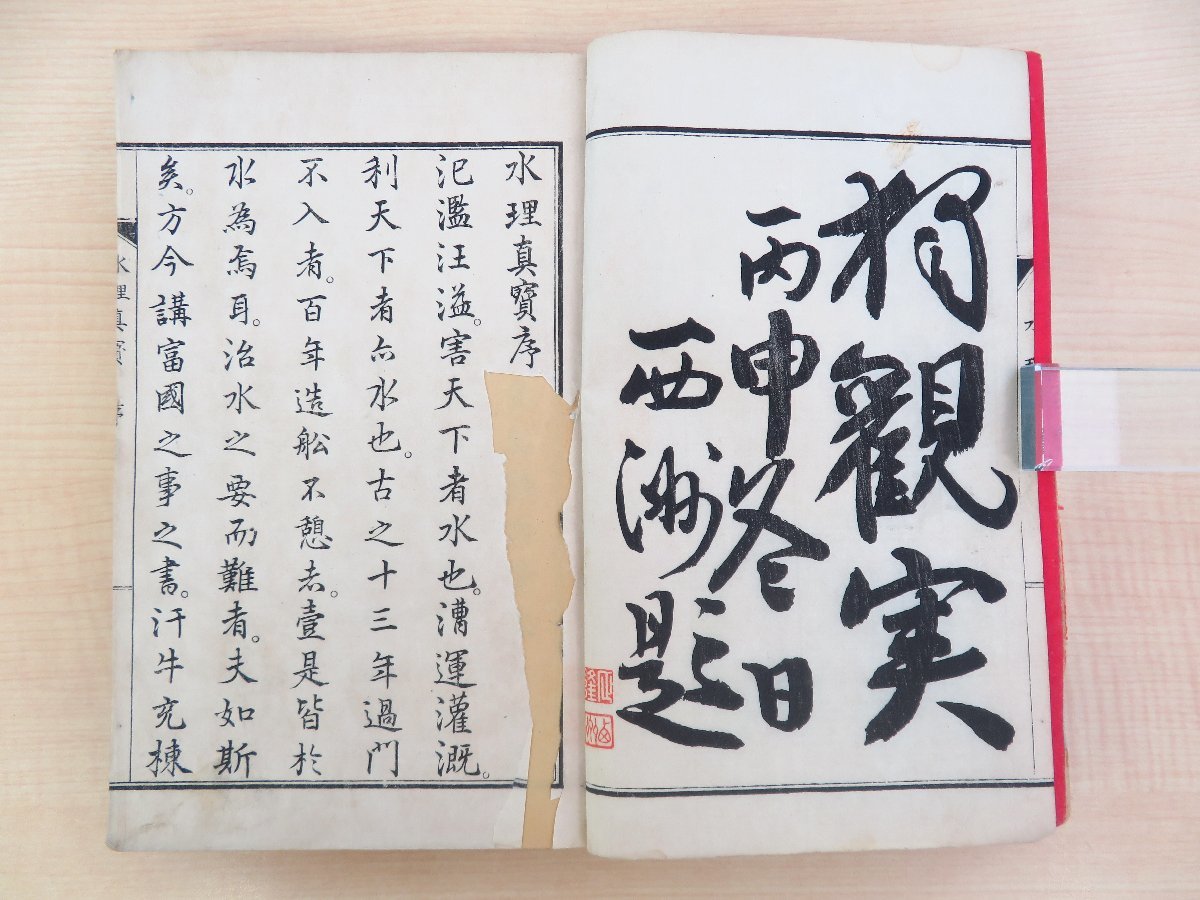 獨觀実
丙申冬之日
西洲題
水理真寳序
汜濫汪溢。害天下者水也。漕運灌漑。
利天下者亦水也。古之十三年過門
不入者。百年造舩不憩者。壹是皆於
水為焉耳。治水之要而難者。夫如斯
矣。方今講富國之事之書。汗牛充棟
水理真寳 序